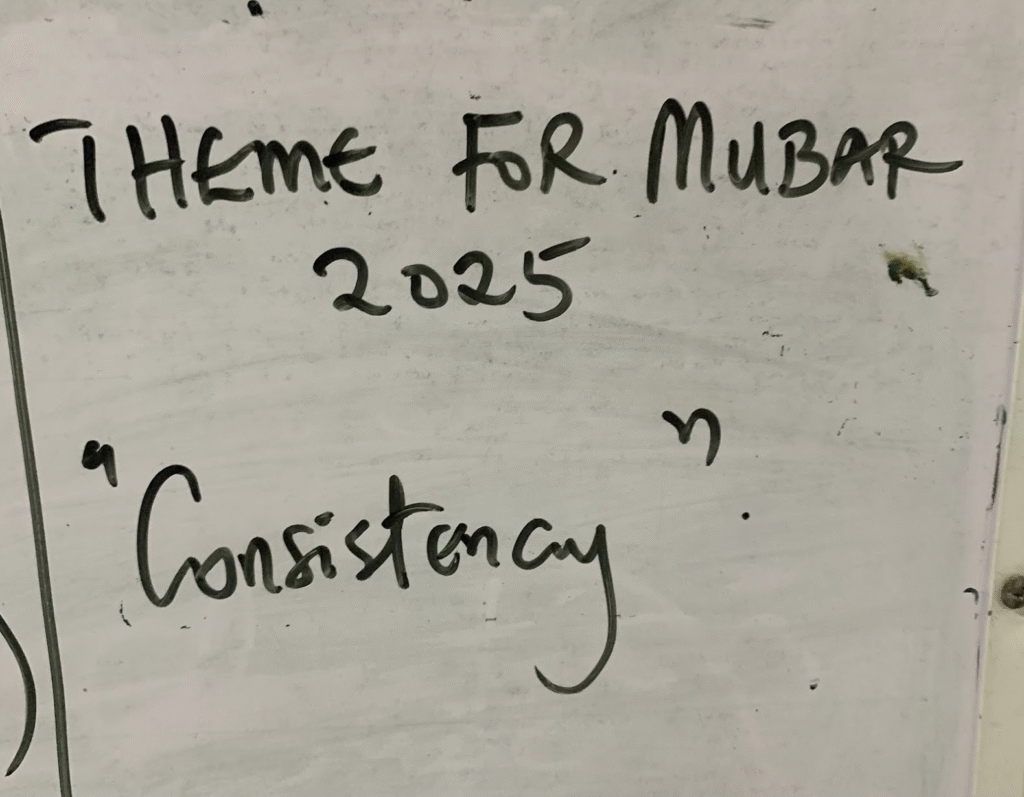 THEME FOR MUBAR
2025
"Consistency"